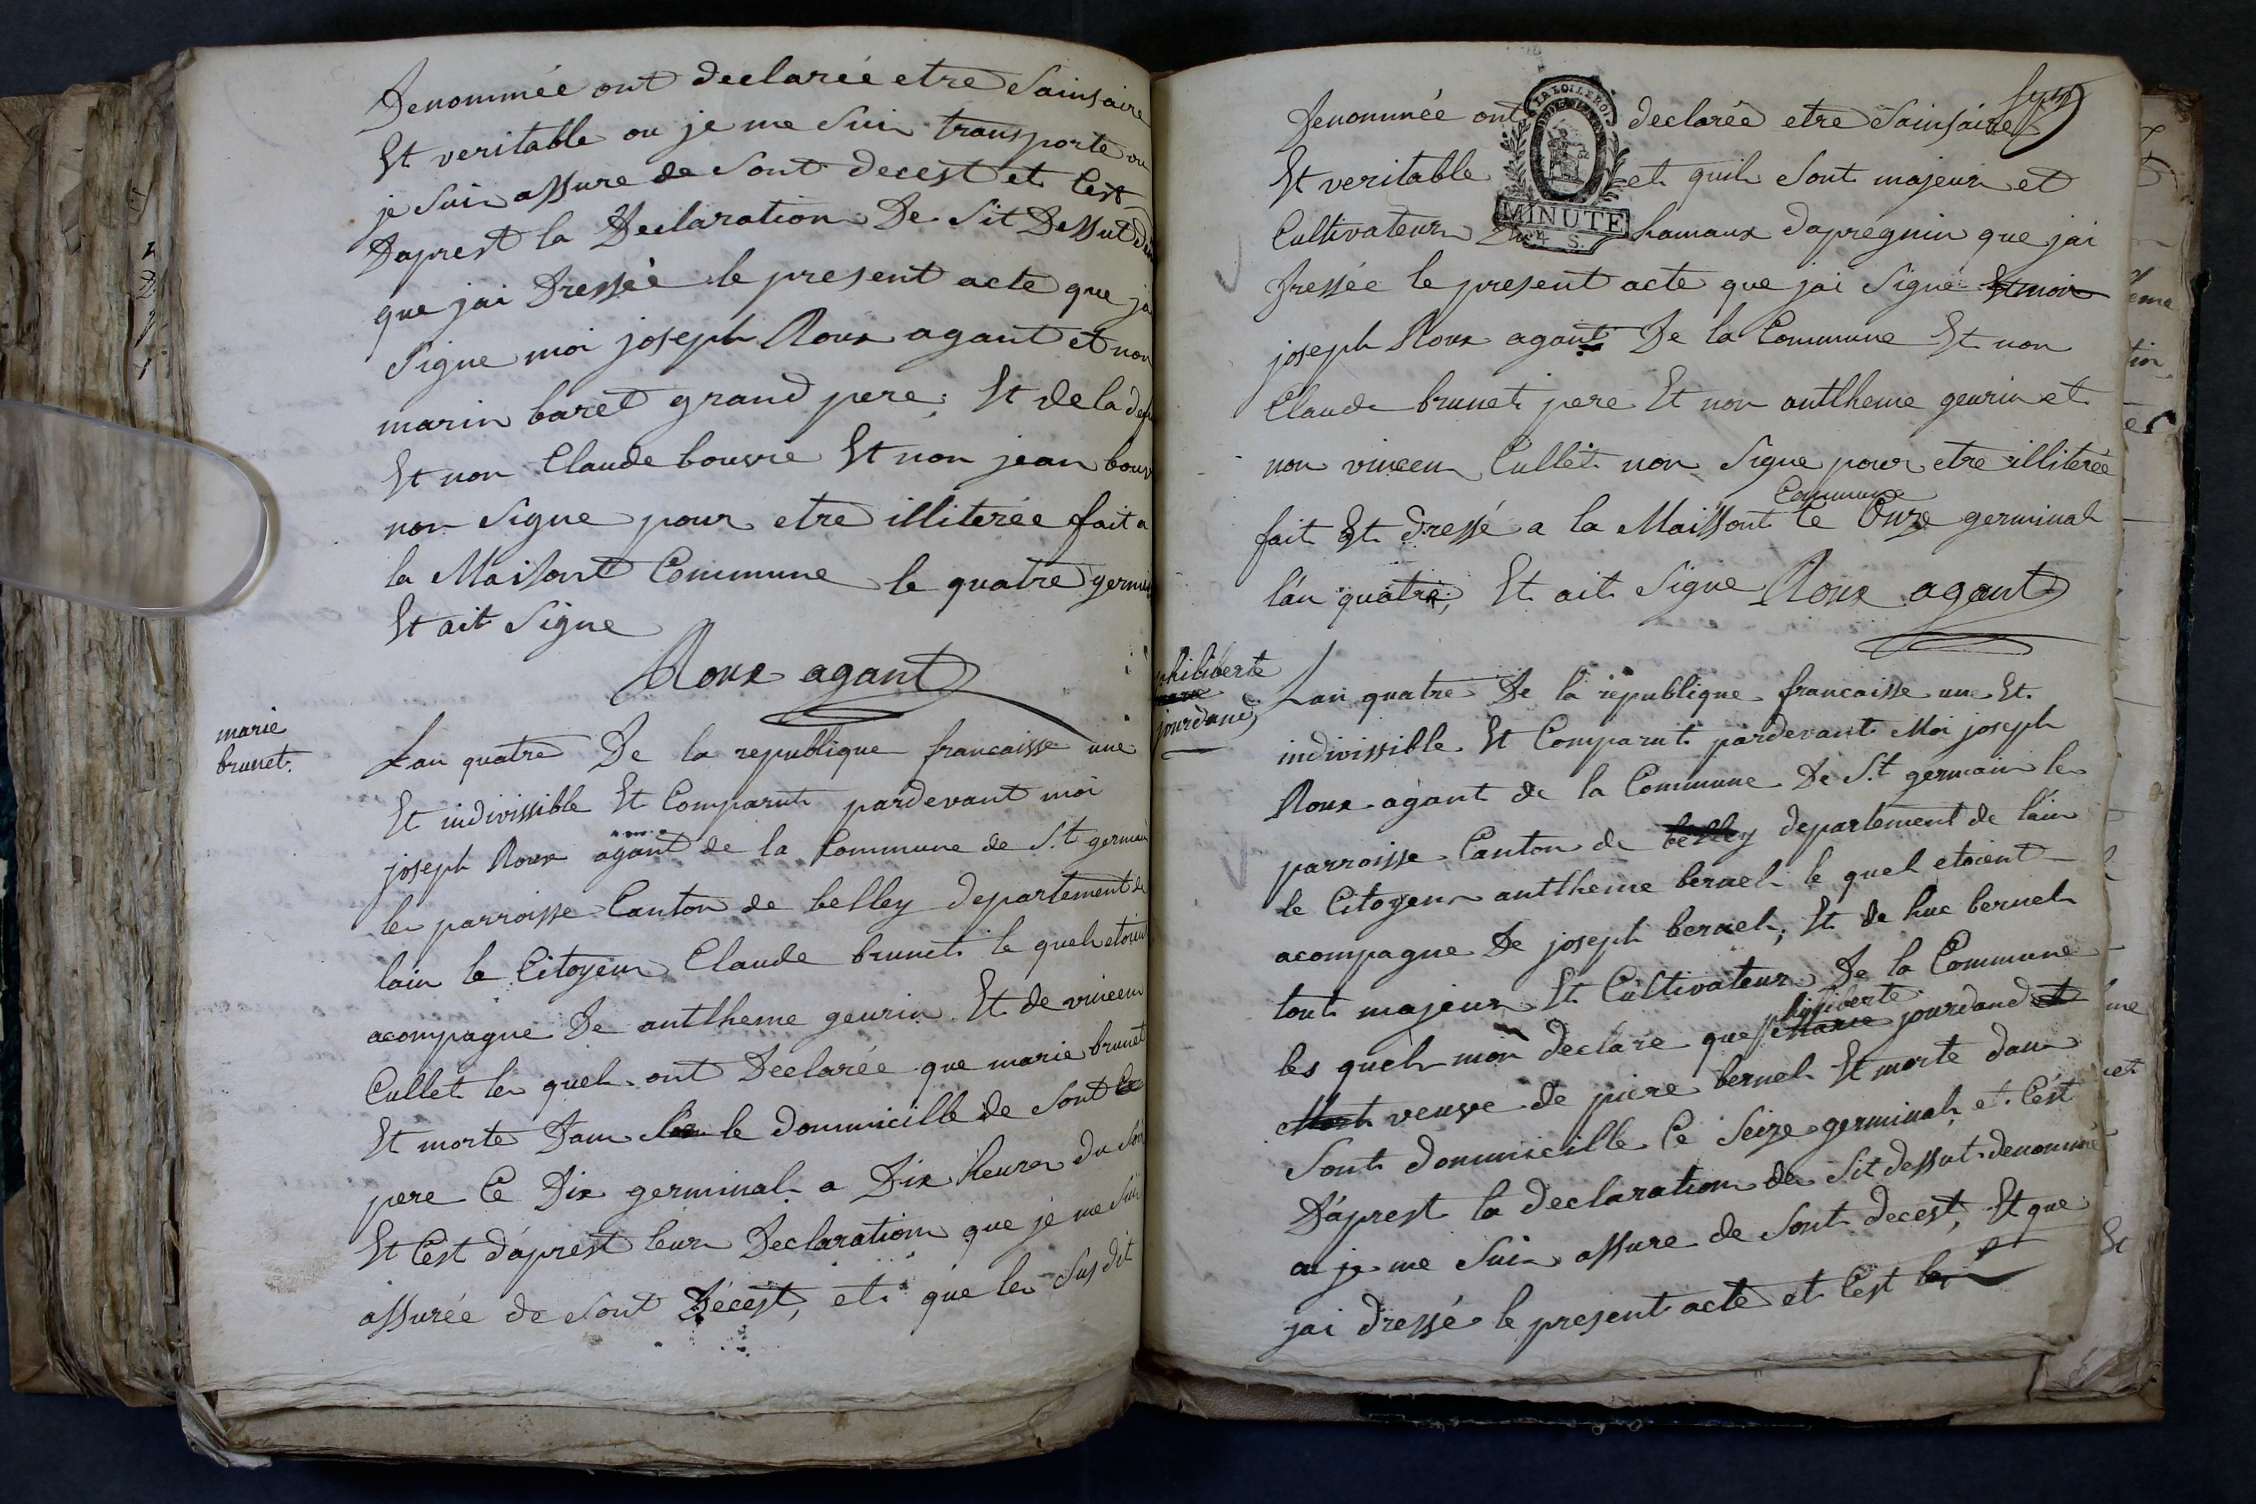 Denommée ont declarée etre Sainsaire
Et veritable ou je me Suis transporte ou
je Suis assure de Sont decest et Cest
Daprest la Declaration De Sit Dessut
que jai Dressée le present acte que jai
Signe moi joseph Roux agant et non
marin baret grand pere; Et de la
Et non Claude bouvre Et non jean bouv
non Signe pour etre illiterée fait a
la Maisont Commune le quatre germi
Et ait Signe
Roux agant
marie
brunet.
Lan quatre De la republique francaisse une
Et indivissible Et Comparut pardevant moi
joseph Roux agant de la Commune de S.t germain
les parroisse Canton de belley departement de
lain le Citoyens Claude brunet le quel etoient
acompagne De antlheme geurin Et de vincens
Cullet les quels ont Declarée que marie brunet
Et morte Dans le dommicille de Sont
pere Ce Dix germinal a Dix heures du Soir
Et Cest d'aprest leurs Declaration que je me Suis
assurée de Sont Décest, et que les Susdit
Denommée ont declarée etre Sainsaire
Et veritable et quils Sont majeurs et
Cultivateurs hamaux dapregnin que jai
Dressée le present acte que jai Signé Et moi
joseph Roux agant De la Commune Et non
Claude brunet pere Et non antlheme geurin et
non vincens Cullet non Signe pour etre illiterée
Commune
fait Et dressé a la Maissont le Onze germinal
l'an quatre; Et ait Signe Roux agant
LA LOI LE ROI
MINUTE
4 S.
philiberte
marie
jourdand
Lan quatre De la republique francaisse une Et
indivissible Et Comparut pardevant Moi joseph
Roux agant de la Commune De S.t germain les
parroisse Canton de belley departement de lain
le Citoyens antlheme bernel le quel etoient
acompagne De joseph bernel; Et de huc bernel
tout majeurs Et Cultivateurs De la Commune
philiberte
les quels mon declare que Marie jourdand et
Mort veuve de piere bernel Et morte dans
Sont dommicille Ce Seize germinal et C'est
D'aprest la declaration de Sit dessut denommé
ou je me Suis assure de Sont decest, Et que
jai dressé le present acte et Cest les